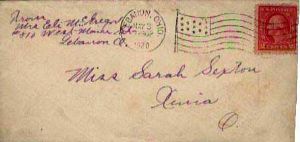 From
Mrs Eli McGregor
#810 West Main St.
Lebanon O.
LEBANON, OHIO
1920
Miss Sarah Sexton
Xenia
O.